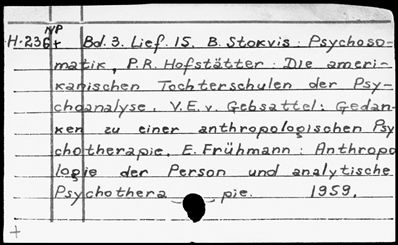 N/P
H-236+ Bd.3. Lief. 15. B. Stokvis: Psychoso-
matik, P.R. Hofstätter: Die ameri-
kanischen Tochterschulen der Psy-
choanalyse. V.E.v. Gebsattel: Gedan-
ken zu einer anthropologischen Psy
chotherapie, E. Frühmann: Anthropo
logie der Person und analytische
Psychothera pie. 1959.
+